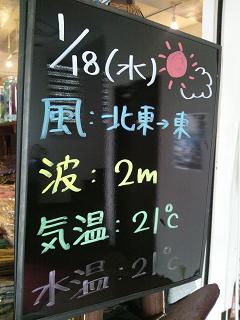 1/18(水)
風:北東→東
波:2m
気温:21℃
水温:21℃